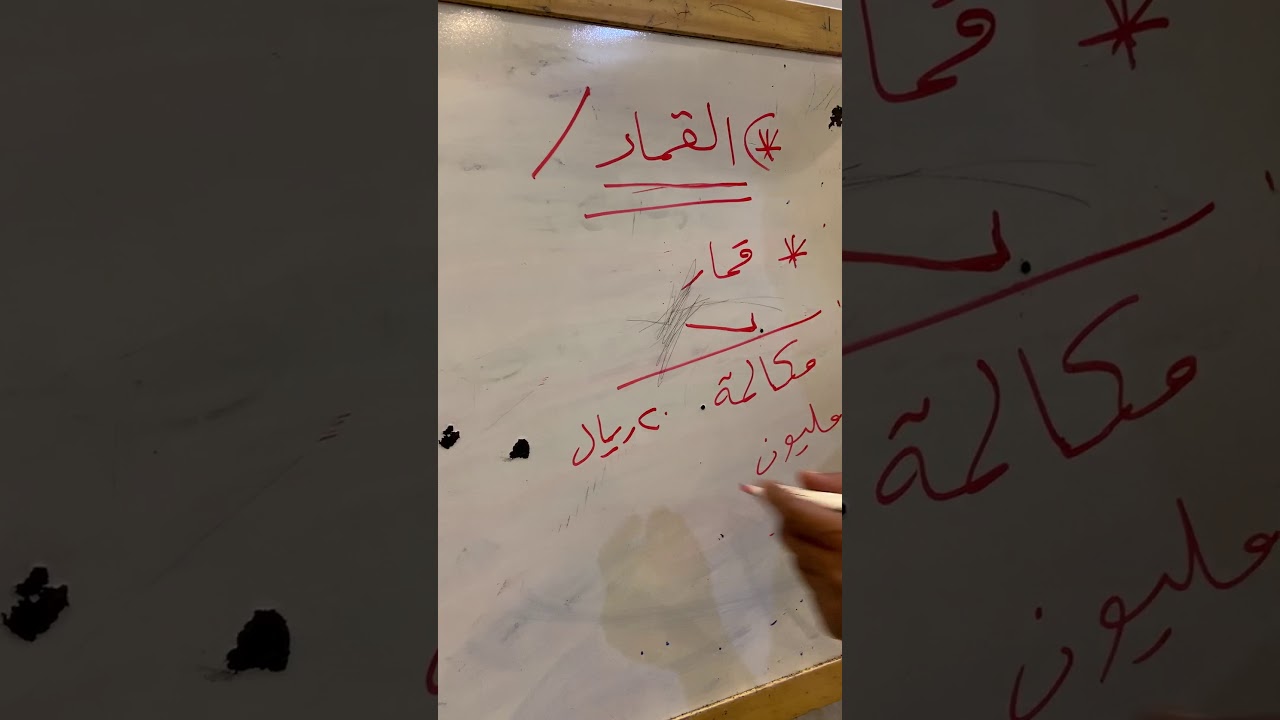 * القمار /
* قمار
بـ
مكالمة. ٢٠ ريال
مليون